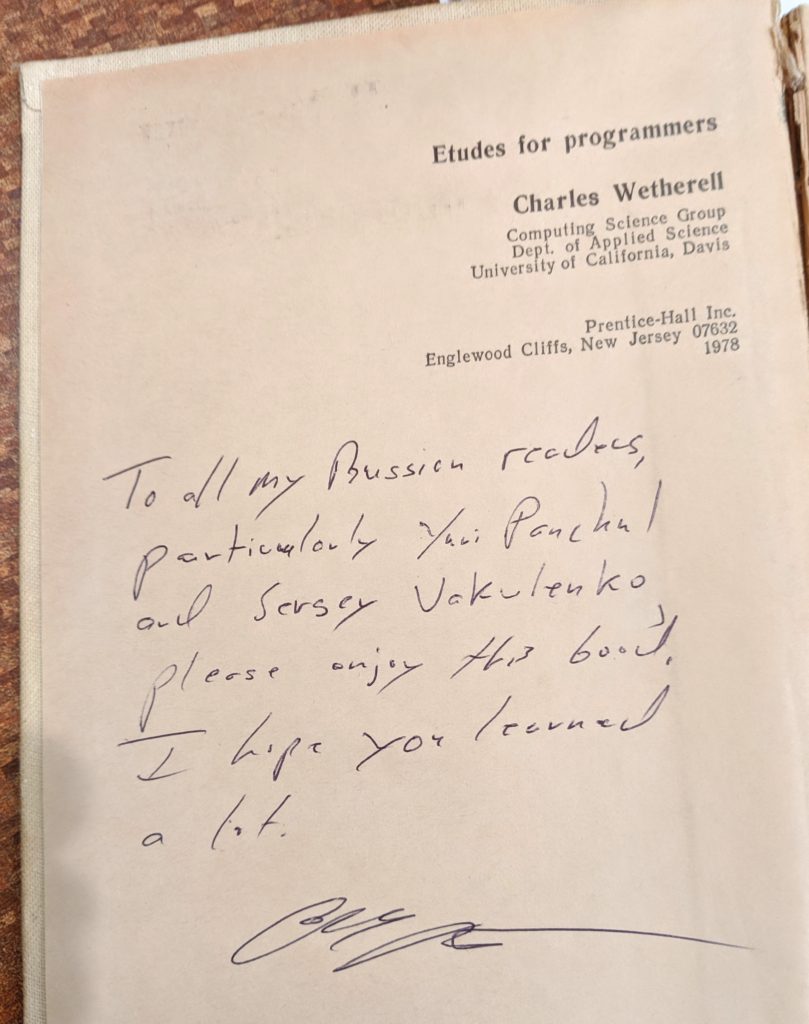 Etudes for programmers
Charles Wetherell
Computing Science Group
Dept. of Applied Science
University of California, Davis
Prentice-Hall Inc.
Englewood Cliffs, New Jersey 07632
1978
To all my Russian readers,
particularly Yuri Panchul
and Sergey Vakulenko,
please enjoy this book.
I hope you learned
a lot.